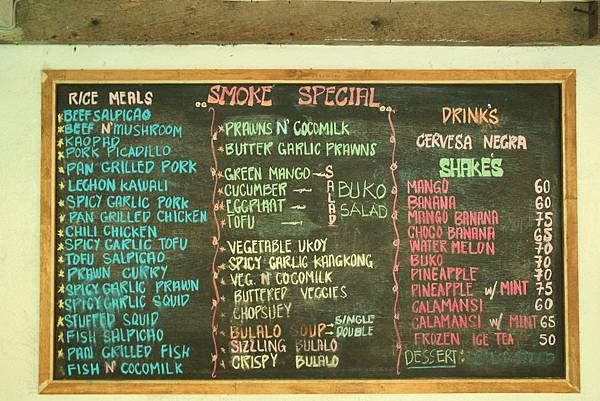 RICE MEALS
BEEF SALPICAO
BEEF N' MUSHROOM
KAOPAD
PORK PICADILLO
PAN GRILLED PORK
LECHON KAWALI
SPICY GARLIC PORK
PAN GRILLED CHICKEN
CHILI CHICKEN
SPICY GARLIC TOFU
TOFU SALPICAO
PRAWN CURRY
SPICY GARLIC PRAWN
SPICY GARLIC SQUID
STUFFED SQUID
FISH SALPICAO
PAN GRILLED FISH
FISH N' COCOMILK
..SMOKE SPECIAL..
PRAWNS N' COCOMILK
BUTTER GARLIC PRAWNS
GREEN MANGO
CUCUMBER
EGGPLANT
TOFU
SALAD
BUKO
SALAD
VEGETABLE UKOY
SPICY GARLIC KANGKONG
VEG. N' COCOMILK
BUTTERED VEGGIES
CHOPSUEY
BULALO SOUP SINGLE
DOUBLE
SIZZLING BULALO
CRISPY BULALO
DRINK'S
CERVESA NEGRA
SHAKE'S
MANGO 60
BANANA 60
MANGO BANANA 75
CHOCO BANANA 65
WATER MELON 70
BUKO 70
PINEAPPLE 70
PINEAPPLE w/ MINT 75
CALAMANSI 60
CALAMANSI w/ MINT 65
FROZEN ICE TEA 50
DESSERT: